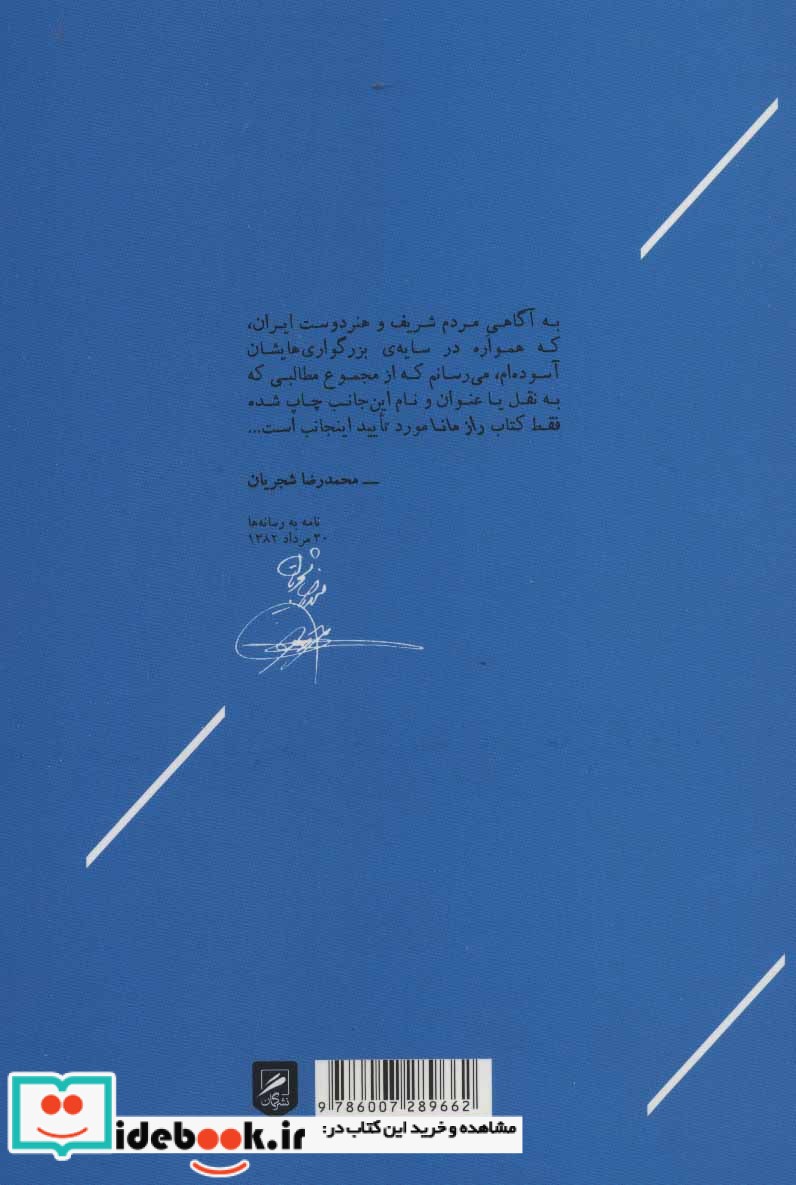 به آگاهی مردم شریف و هنردوست ایران،
که همواره در سایه‌ی بزرگواری‌هایشان
آسوده‌ام، می‌رسانم که از مجموع مطالبی که
به نقل یا عنوان و نام این‌جانب چاپ شده
فقط کتاب راز مانا مورد تأیید اینجانب است...
— محمدرضا شجریان
نامه به رسانه‌ها
۳۰ مرداد ۱۳۸۲
9 786007 289662
مشاهده و خرید این کتاب در:
idebook.ir